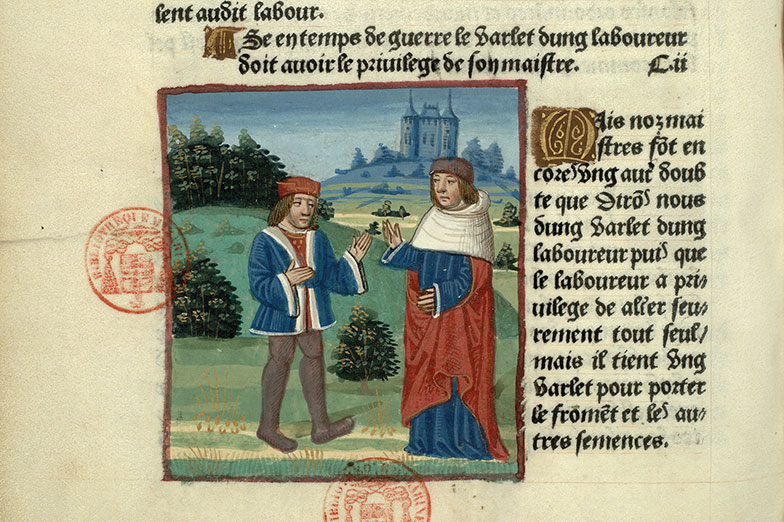 lent audit labour.
Se en temps de guerre le varlet dung laboureur
doit avoir le privilege de son maistre. C.ii
Mais noz mai
stres fōt en
core vng aut̄ doub
te que dirōs nous
dung varlet dung
laboureur puis que
le laboureur a pri
uilege de aller seu
rement tout seul/
mais il tient vng
varlet pour porter
le frōmēt et les au
tres semences.